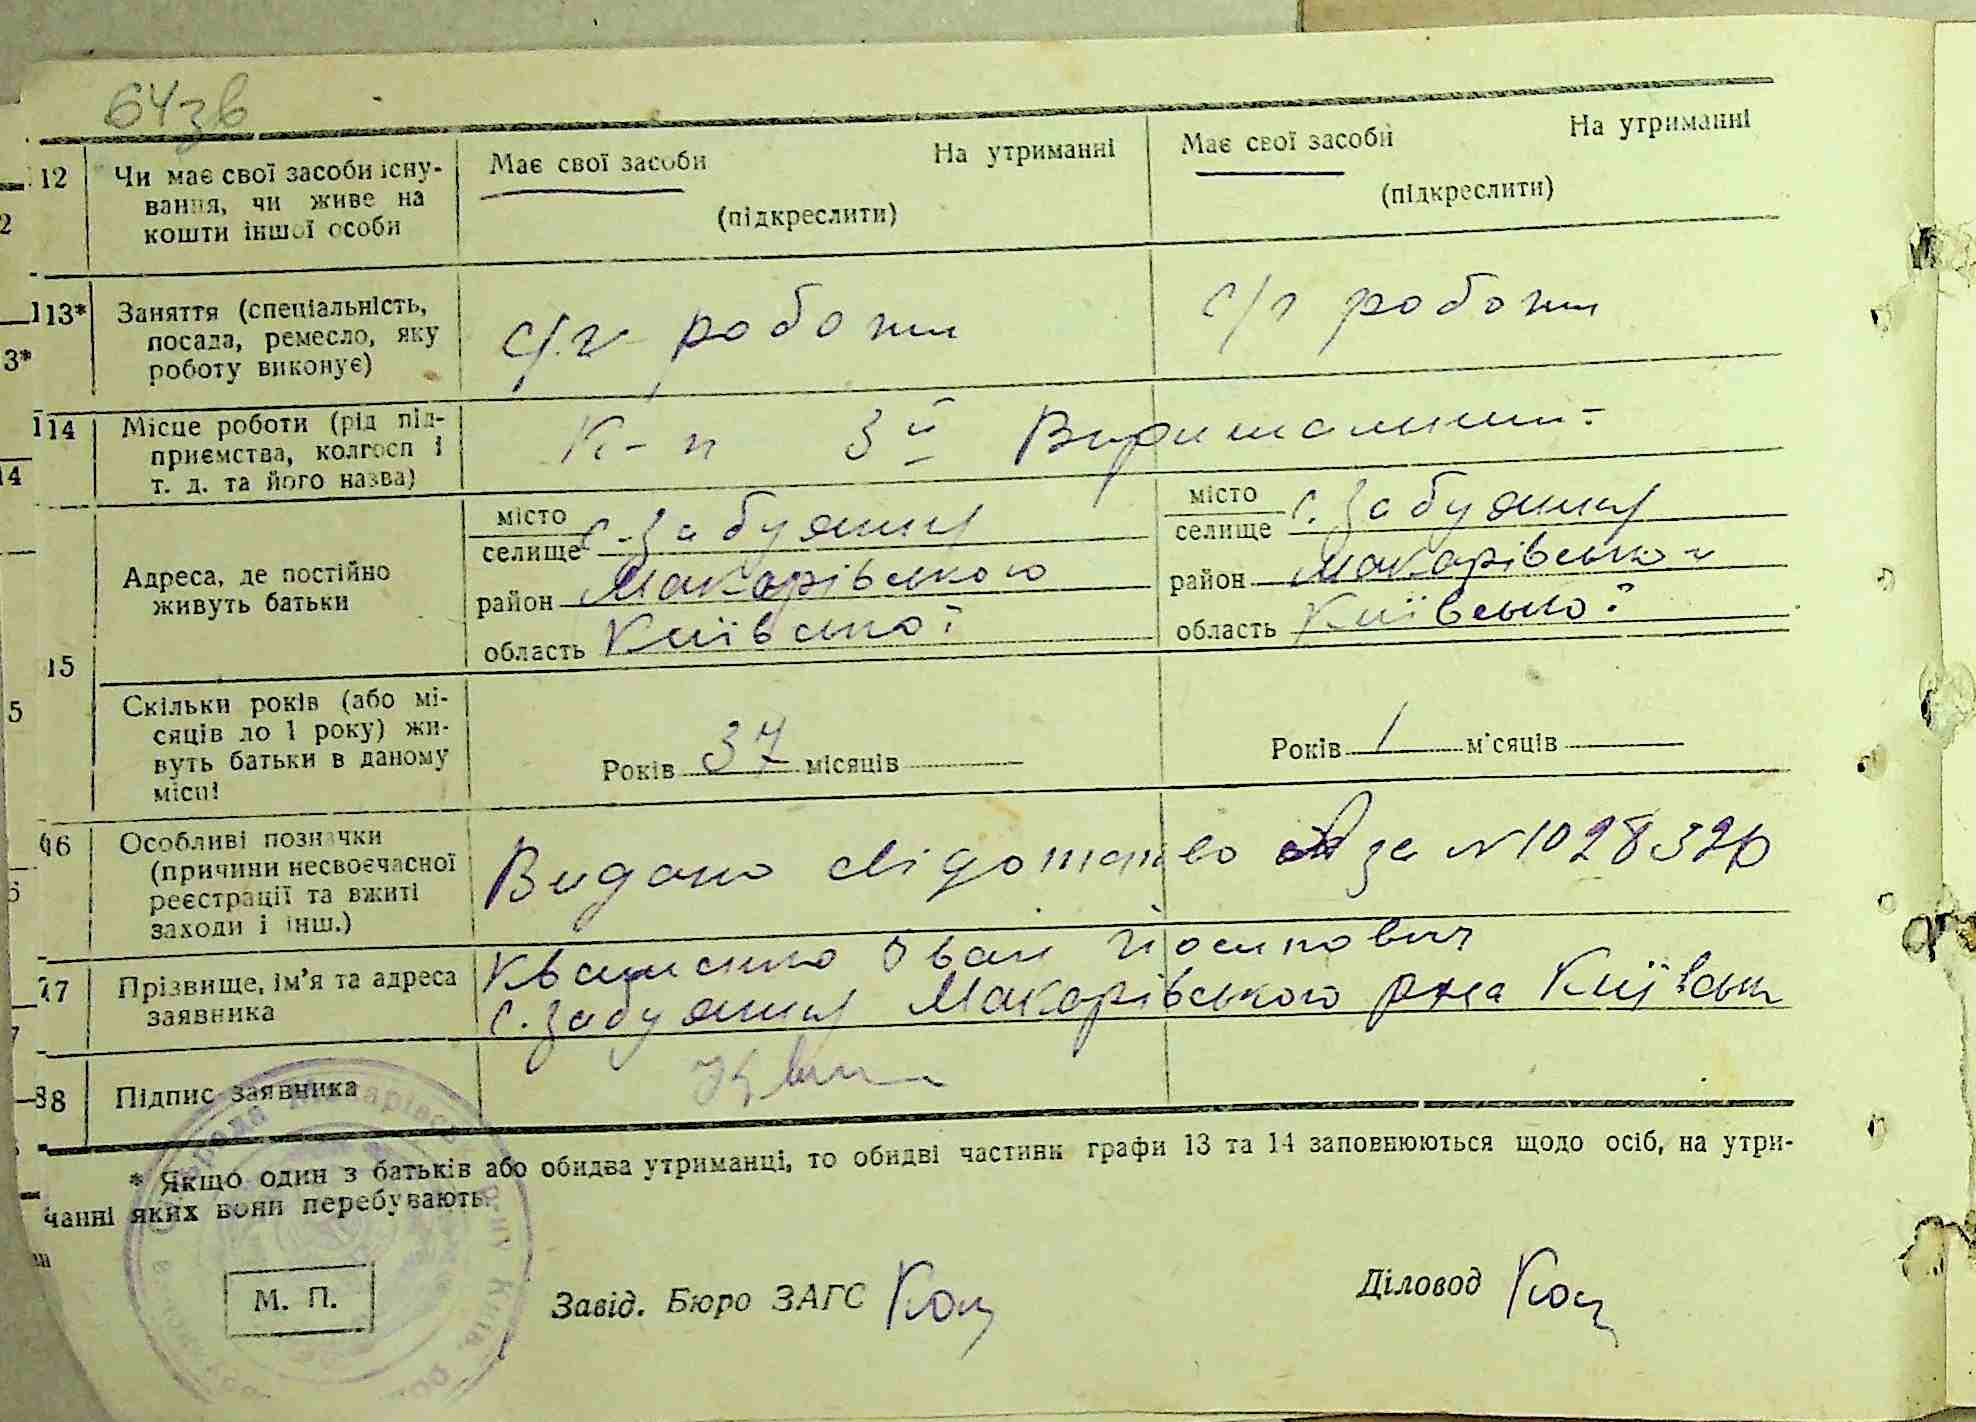 64зв
12 Чи має свої засоби існу-
вання, чи живе на
кошти іншої особи
Має свої засоби На утриманні
(підкреслити)
Має свої засоби На утриманні
(підкреслити)
13* Заняття (спеціальність,
посада, ремесло, яку
роботу виконує)
с/г роботи
с/г роботи
14 Місце роботи (рід під-
приємства, колгосп і
т. д. та його назва)
К-п 3й Вирішальний
Адреса, де постійно
живуть батьки
місто
селище с. Забуяння
район Макарівського
область Київської
місто
селище с. Забуяння
район Макарівсько
область Київської
15
Скільки років (або мі-
сяців до 1 року) жи-
вуть батьки в даному
місці
Років 37 місяців
Років 1 м'сяців
16 Особливі позначки
(причини несвоєчасної
реєстрації та вжиті
заходи і інш.)
Видано свідоцтво за №
17 Прізвище, ім'я та адреса
заявника
Іван Йосипович
с. Забуяння Макарівського р-на Київськ
18 Підпис заявника
* Якщо один з батьків або обидва утриманці, то обидві частини графи 13 та 14 заповнюються щодо осіб, на утри-
манні яких вони перебувають.
М. П.
Завід. Бюро ЗАГС Коц
Діловод Коц